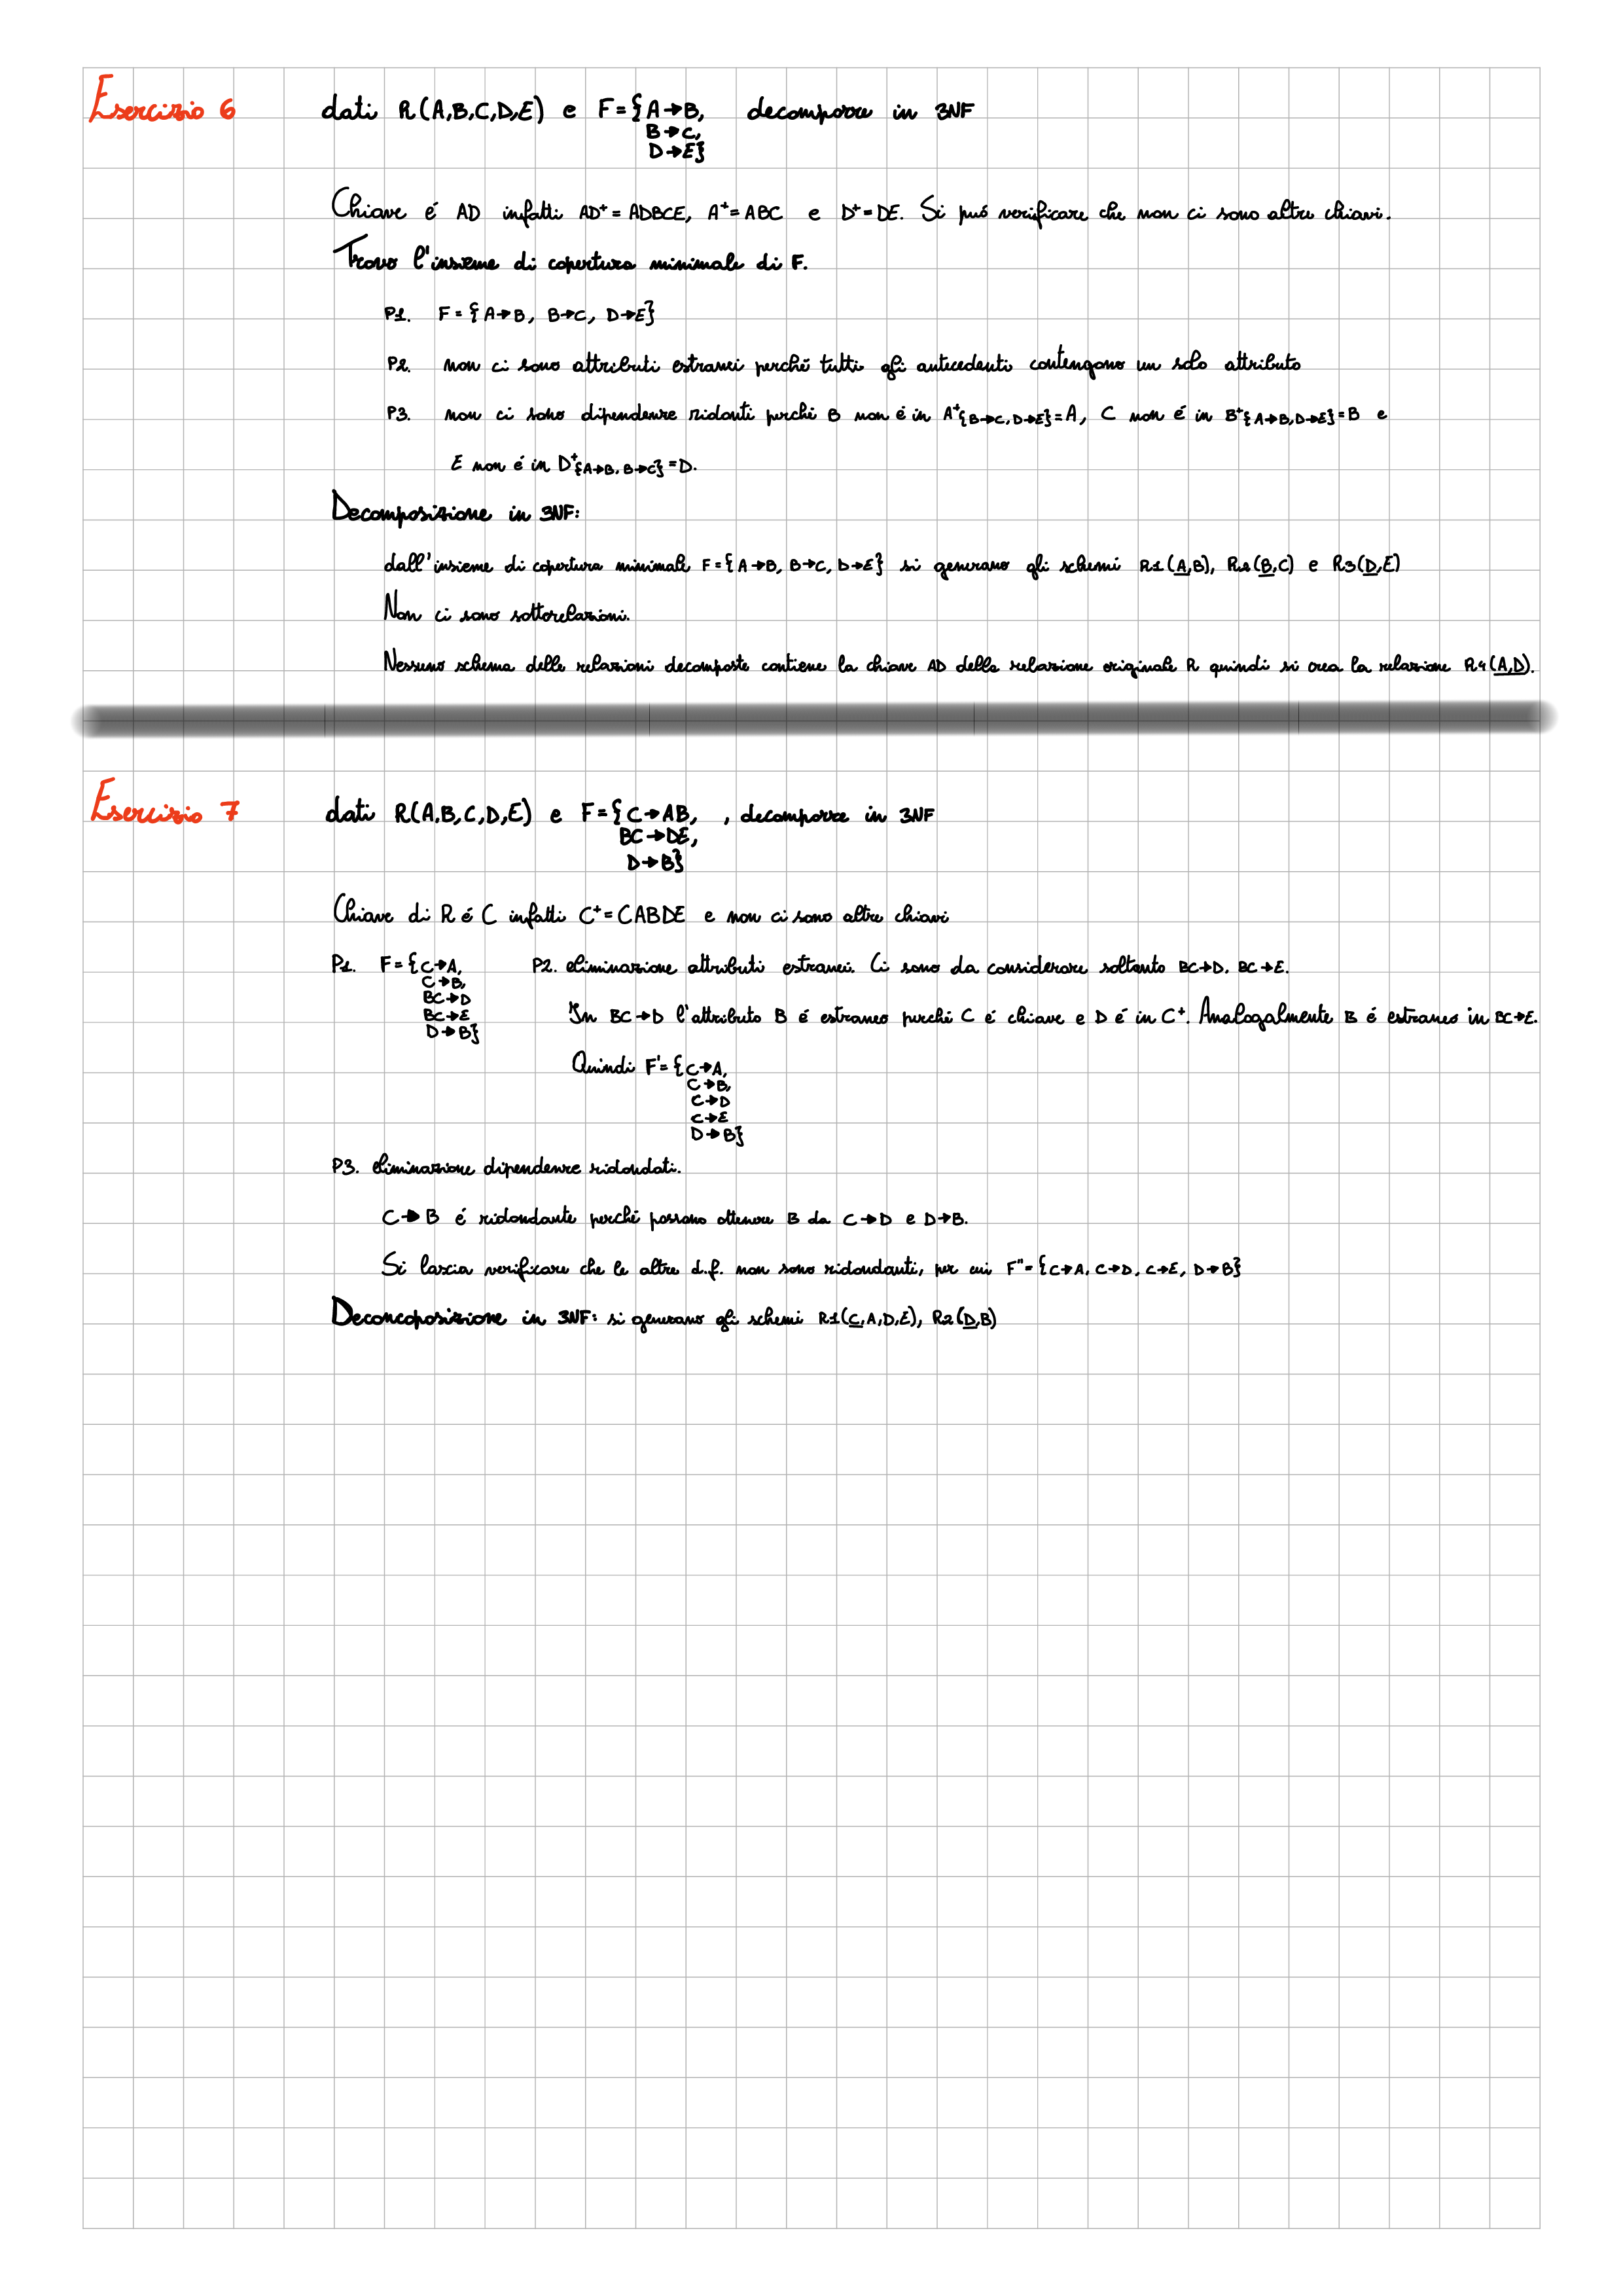 Esercizio 6 dati R(A,B,C,D,E) e F={A→B, decomporre in 3NF
B→C,
D→E}
Chiave é AD infatti AD⁺=ADBCE, A⁺=ABC e D⁺=DE. Si puó verificare che non ci sono altre chiavi.
Trovo l'insieme di copertura minimale di F.
P1. F={A→B, B→C, D→E}
P2. non ci sono attributi estranei perché tutti gli antecedenti contengono un solo attributo
P3. non ci sono dipendenze ridonti perché B non é in A⁺{B→C, D→E}=A, C non é in B⁺{A→B, D→E}=B e
E non é in D⁺{A→B, B→C}=D.
Decomposizione in 3NF:
dall'insieme di copertura minimale F={A→B, B→C, D→E} si generano gli schemi R1(A,B), R2(B,C) e R3(D,E)
Non ci sono sottorelazioni.
Nessuno schema delle relazioni decomposte contiene la chiave AD della relazione originale R quindi si crea la relazione R4(A,D).
Esercizio 7 dati R(A,B,C,D,E) e F={C→AB, , decomporre in 3NF
BC→DE,
D→B}
Chiave di R é C infatti C⁺=CABDE e non ci sono altre chiavi
P1. F={C→A, P2. eliminazione attributi estranei. Ci sono da considerare soltanto BC→D, BC→E.
C→B,
BC→D
BC→E In BC→D l'attributo B é estraneo perché C é chiave e D é in C⁺. Analogalmente B é estraneo in BC→E.
D→B}
Quindi F'={C→A,
C→B,
C→D
C→E
D→B}
P3. eliminazione dipendenze ridondati.
C→B é ridondante perché possono ottenere B da C→D e D→B.
Si lascia verificare che le altre d.f. non sono ridondanti, per cui F''={C→A, C→D, C→E, D→B}
Deconcoposizione in 3NF: si generano gli schemi R1(C,A,D,E), R2(D,B)